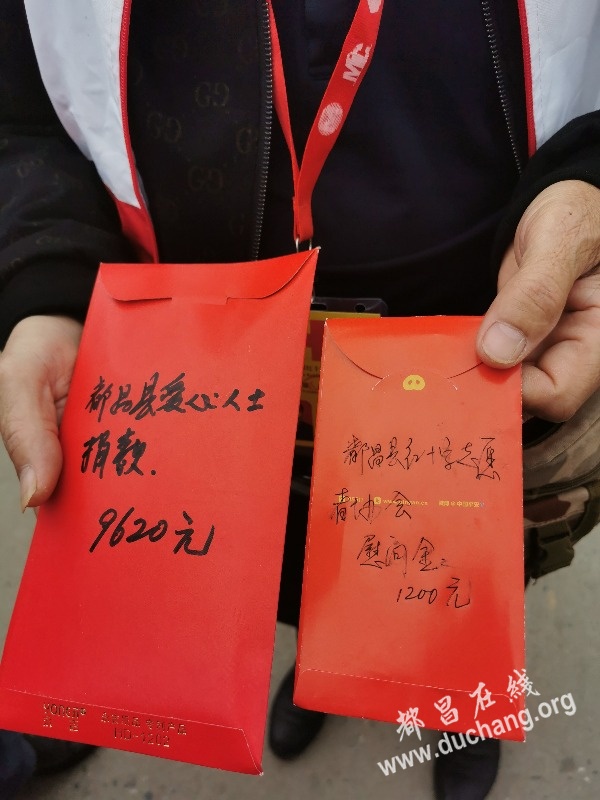 MC
都昌县爱心人士
捐款.
9620元
都昌县红十字志愿
者协会
慰问金:
1200元
都昌在线
www.duchang.org